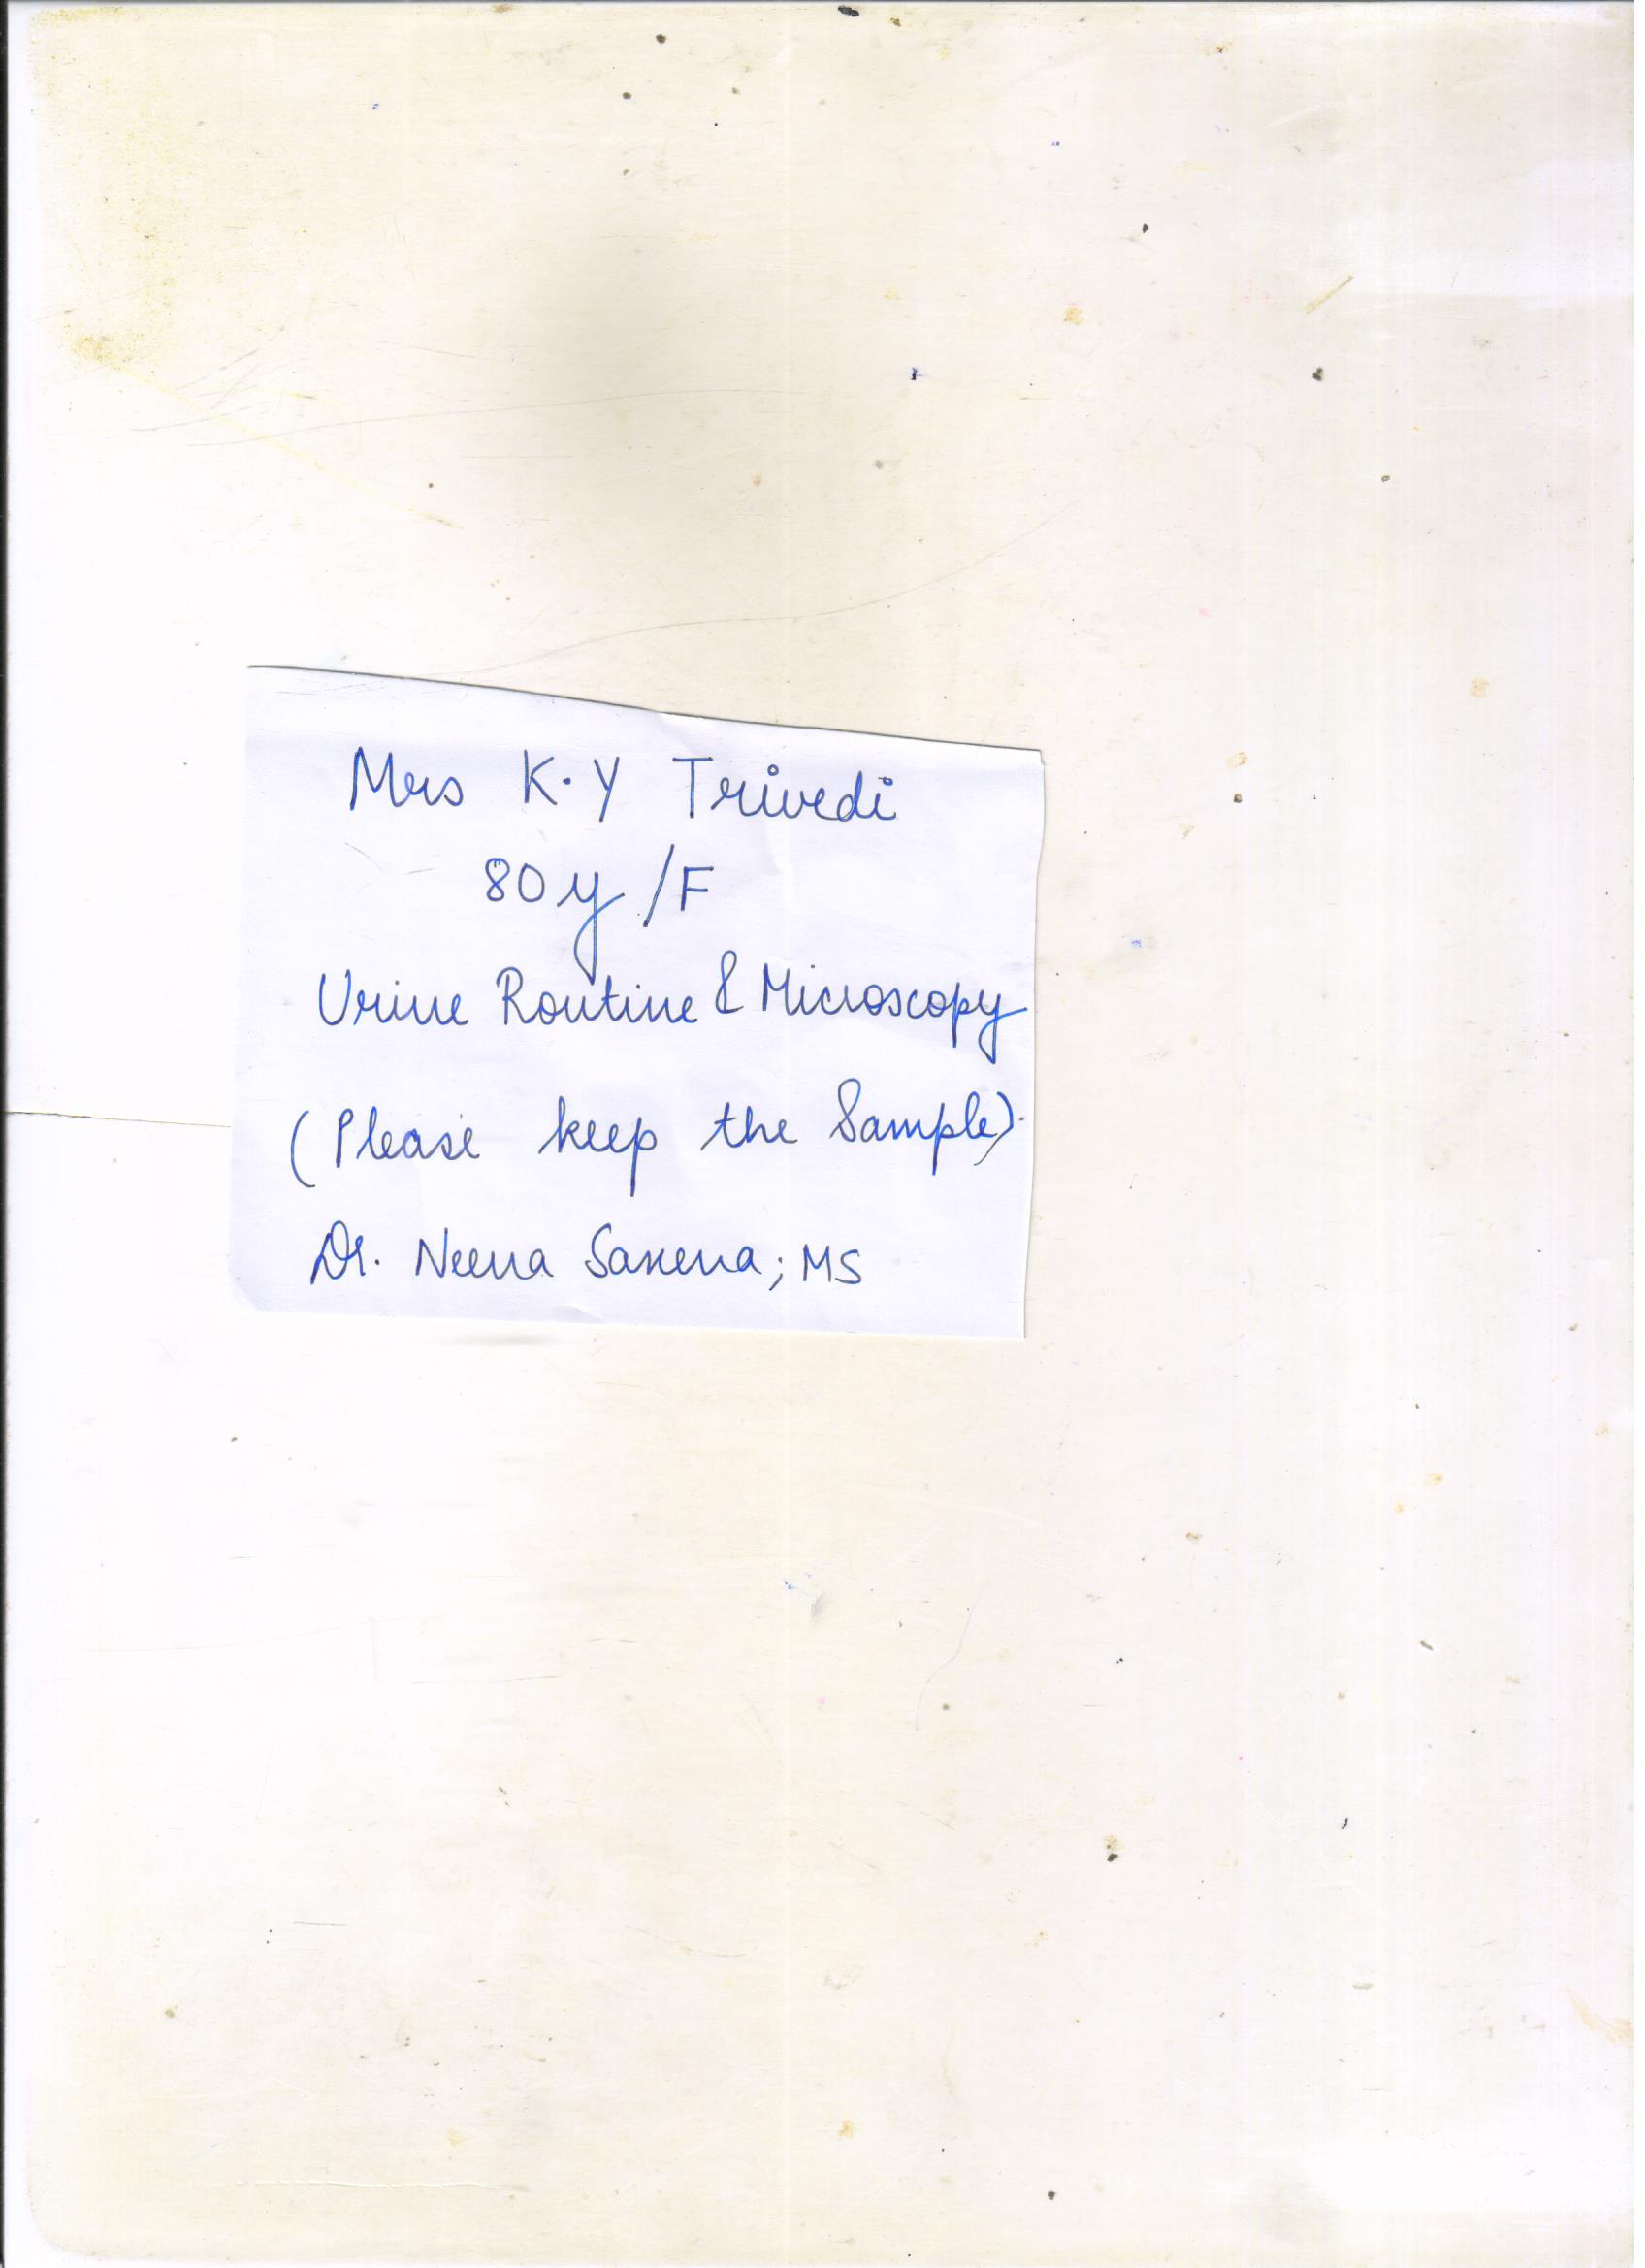 Mrs K.Y Trivedi
80y/F
Urine Routine & Microscopy
(Please keep the Sample).
Dr. Neena Saxena; MS